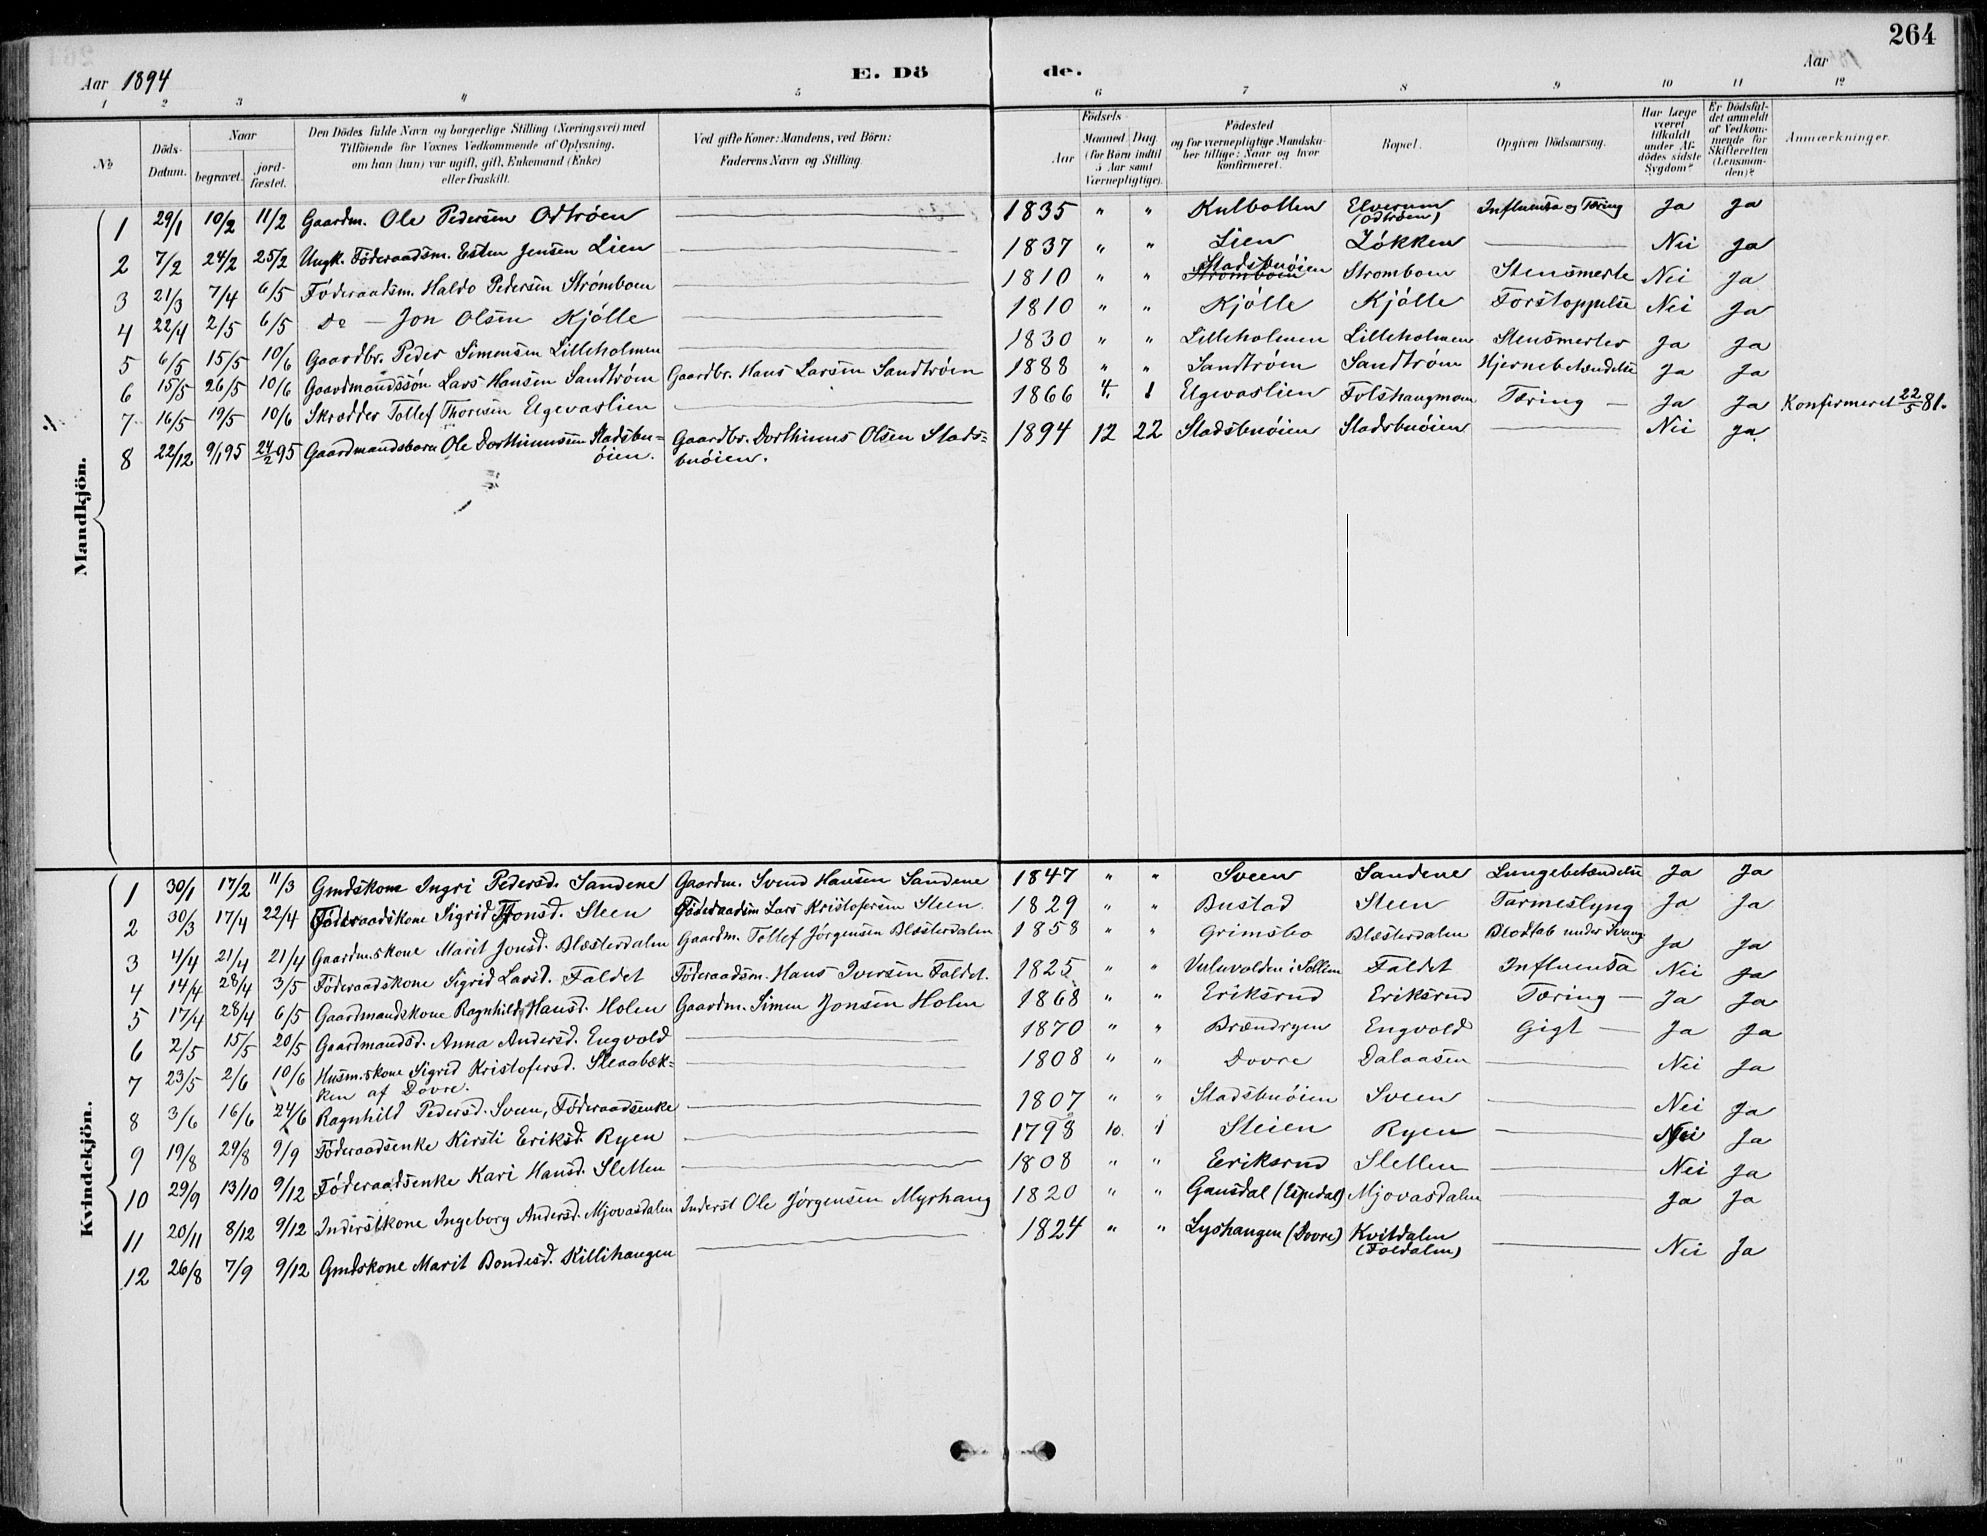 264
Aar 1894
E. Dö
de.
Aar
1 2 3 4 5 6 7 8 9 10 11 12
No
Döds-
Datum.
Naar
begravet.
jord-
fæstet.
Den Dödes fulde Navn og borgerlige Stilling (Næringsvei) med
Tilföiende for Voxnes Vedkommende af Oplysning,
om han (hun) var ugift, gift, Enkemand (Enke)
eller fraskilt.
Ved gifte Koner: Mandens, ved Börn:
Faderens Navn og Stilling.
Födsels
Aar
Maaned
Dag
(for Börn indtil
5 Aar samt
Værnepligtige).
Födested
og for værnepligtige Mandsku-
ber tillige: Naar og hvor
konfirmeret.
Bopæl.
Opgiven Dödsaarsag.
Har Læge
været
tilkaldt
under Af-
dödes sidste
Sygdom?
Er Dödsfal-
det anmeldt
af Vedkom-
mende for
Skifteretten
(Lensman-
den)?
Anmærkninger.
Mandkjön.
1 29/1 10/2 11/2 Gaardm. Ole Pedersen Odtrøen 1835 " " Kulbotten Elverum (Odtrøen) Influensa og Tæring Ja Ja
2 7/2 24/2 25/2 Ungk. Föderaadsm. Esten Jensen Lien 1837 " " Lien Løkken Nei Ja
3 21/3 7/4 6/5 Föderaadsm. Haldo Pedersen Strømboen 1810 " " Stadsbuøien Strømboen Stromboen Stensmerte Nei Ja
4 22/4 2/5 6/5 Do — Jon Olsen Kjølle 1810 " " Kjølle Kjølle Forstoppelse Nei Ja
5 6/5 15/5 10/6 Gaardbr. Peder Simensen Lilleholmen 1830 " " Lilleholmen Lilleholmen Stensmerter Ja Ja
6 15/5 26/5 10/6 Gaardmandssøn Lars Hansen Sandtrøen Gaardbr. Hans Larsen Sandtrøen 1888 " " Sandtrøen Sandtrøen Hjernebetændelse Ja Ja
7 16/5 19/5 10/6 Skrædder Tollef Thoresen Elgevaslien 1866 4. 1 Elgevaslien Folshaugmoen Tæring — Ja Ja Konfirmeret 22/5 81.
8 22/12 9/1 95 24/2 95 Gaardmandsbarn Ole Dorthinussen Stadsbu-
øien. Gaardbr. Dorthinus Olsen Stads-
buøien. 1894 12 22 Stadsbuøien Stadsbuøien Nei Ja
Kvindekjön.
1 30/1 17/2 11/3 Gmdskone Ingri Pedersd. Sandene Gaardm. Svend Hansen Sandene 1847 " " Sveen Sandene Lungebetændelse Ja Ja
2 30/3 17/4 22/4 Föderaadskone Sigrid Jonsd. Steen Föderaadsm Lars Kristofersen Steen. 1829 " " Bustad Steen Tarmeslyng Ja Ja
3 4/4 21/4 21/4 Gaardm.skone Marit Jonsd. Blæsterdalen Gaardm. Tollef Jørgensen Blæsterdalen 1858 " " Grimsbo Blæsterdalen Blodtab under Svang. Ja Ja
4 14/4 28/4 3/5 Föderaadskone Sigrid Larsd. Faldet Föderaadsm. Hans Iversen Faldet. 1825 " " Vuluvolden i Sollien Faldet Influensa Nei Ja
5 17/4 28/4 6/5 Gaardmandskone Ragnhild Hansd. Holen Gaardm. Simen Jonsen Holen 1868 " " Eriksrud Eriksrud Tæring — Ja Ja
6 2/5 15/5 20/5 Gaardmandsd. Anna Andersd. Engvold 1870 " " Brændryen Engvold Gigt — Ja Ja
7 23/5 2/6 10/6 Husm.skone Sigrid Kristofersd. Sleaabæk-
ken af Dovre. 1808 " " Dovre Dalaasen Nei Ja
8 3/6 16/6 24/6 Ragnhild Pedersd. Sveen, Föderaadsenke 1807 " " Stadsbuøien Sveen Nei Ja
9 19/8 29/8 9/9 Föderaadsenke Kirsti Eriksd. Ryen 1798 10. 1 Steien Ryen Nei Ja
10 29/9 13/10 9/12 Föderaadsenke Kari Hansd. Sletten 1808 " " Eeriksrud Sletten Nei Ja
11 20/11 8/12 9/12 Inderstkone Ingeborg Andersd. Mjovasdalen Inderst Ole Jørgensen Myrhaug 1820 " " Gausdal (Espedal) Mjovasdalen Ja Ja
12 26/8 7/9 9/12 Gmdskone Marit Bondesd. Killihaugen 1824 " " Lyshaugen (Dovre) Kvitdalen
(Foldalen) Nei Ja